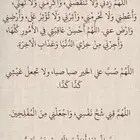 اللَّهُمَّ زِدْنِي وَلَا تَنْقُصْنِي وَأَكْرِمْنِي وَلَا تُهِنِّي
وَأَعْطِنِي وَلَا تَحْرِمْنِي وَآثِرْنِي وَلَا تُؤْثِرْ عَلَيَّ وَأَرْضِنِي
وَارْضَ عَنِّي اللَّهُمَّ أَحْسِنْ عَاقِبَتِي فِي الْأُمُورِ كُلِّهَا
وَأَجِرْنِي مِنْ خِزْيِ الدُّنْيَا وَعَذَابِ الْآخِرَةِ
اللَّهُمَّ صُبَّ عَلَيَّ الْخَيْرَ صَبًّا صَبًّا، وَلَا تَجْعَلْ عَيْشِي
كَدًّا كَدًّا.
اللَّهُمَّ قِنِي شُحَّ نَفْسِي، وَاجْعَلْنِي مِنَ الْمُفْلِحِينَ